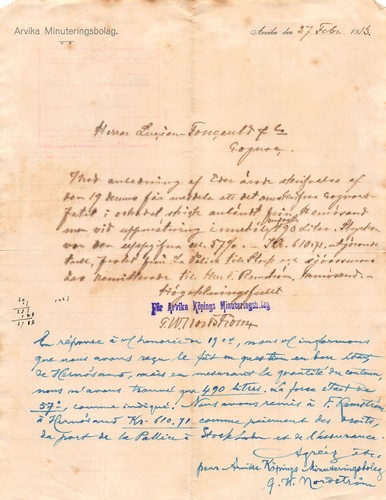 Arvika Minuteringsbolag.
Arvika den 27 Febr. 1915.
Herrar Lucien-Foucauld & Co
Cognac.
Med anledning af Eder ärade skrifvelse af
den 19 dennes får meddela att det omskrifna Cognacs-
fatet i oskadat skick anländt från Hernösand
men vid uppmätning innehöll endast 490 liter. Styrkan
var den uppgifna 57%. - Kr. 610.71, utgörande
tull, frakt från La Pallice till Sthlm och sjöassurans
har remitterats till Herr F. Ramström, Hernösand.
Högaktningsfullt
För Arvika Köpings Minuteringsbolag
G. W. Nordström
En réponse à l'honorée du 19 ct, nous informons
que nous avons reçu le fût en question en bon état
de Hernösand, mais en mesurant la quantité du contenu,
nous n'avons trouvé que 490 litres. La force était de
57°, comme indiqué. Nous avons remis à F. Ramström
à Hernösand Kr. 610.71 comme paiement des droits,
du port de la Pallice à Stockholm et de l'assurance.
Agréez etc
pour Arvika Köpings Minuteringsbolag
G. W. Nordström